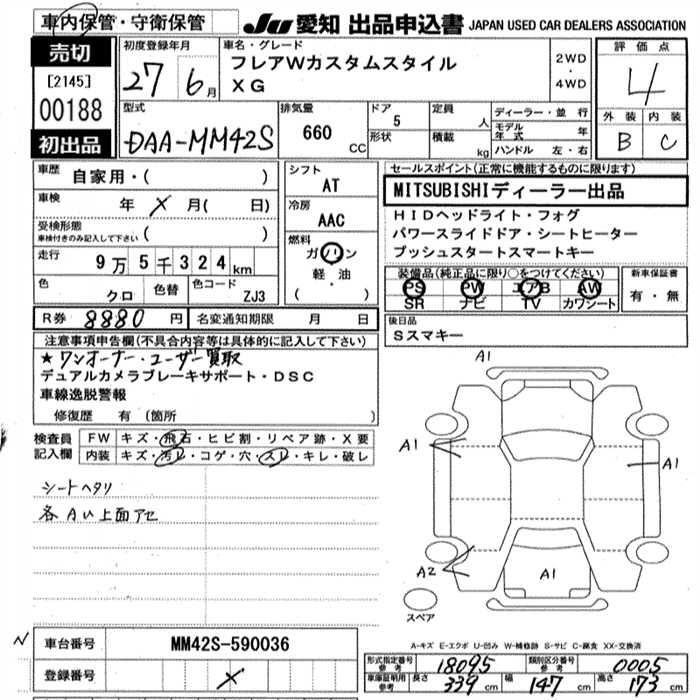 車内保管・守衛保管
JU 愛知 出品申込書 JAPAN USED CAR DEALERS ASSOCIATION
売切
[2145]
00188
初出品
初度登録年月
27 6月
車名・グレード
フレアWカスタムスタイル
XG
2WD
・
4WD
評価点
4
外装 内装
B C
型式
DAA-MM42S
排気量
660 CC
ドア 5
形状
定員 人
積載 kg
ディーラー・並行
モデル年式 年
ハンドル 左・右
車歴 自家用・( )
車検 年 X 月( 日)
受検形態
車検付きのみ記入して下さい ( )
走行 9万5千324km
色 クロ 色替 色コード ZJ3
シフト
AT
冷房
AAC
燃料
ガソリン
軽・油
( )
セールスポイント(正常に機能するものに限ります)
MITSUBISHIディーラー出品
HIDヘッドライト・フォグ
パワースライドドア・シートヒーター
プッシュスタートスマートキー
装備品(純正品に限り○をつけてください)
PS PW エアB AW
SR ナビ TV カワシート
新車保証書
有・無
R券 8880 円 名変通知期限 月 日
後日品
Sスマキー
注意事項申告欄(不具合内容等は具体的に記入して下さい)
★ワンオーナー・ユーザー買取
デュアルカメラブレーキサポート・DSC
車線逸脱警報
修復歴 有 (箇所 )
検査員
記入欄
FW キズ・飛石・ヒビ割・リペア跡・X要
内装 キズ・汚レ・コゲ・穴・スレ・キレ・破レ
シートヘタリ
各Aい上面アセ
A1
A1
A1
A2
A1
スペア
A-キズ E-エクボ U-凹み W-補修跡 S-サビ C-腐食 XX-交換済
N
車台番号 MM42S-590036
登録番号 X
形式指定番号
参考 18095
類別区分番号
参考 0005
車庫証明用
参考 長さ 339 cm 幅 147 cm 高さ 173 cm